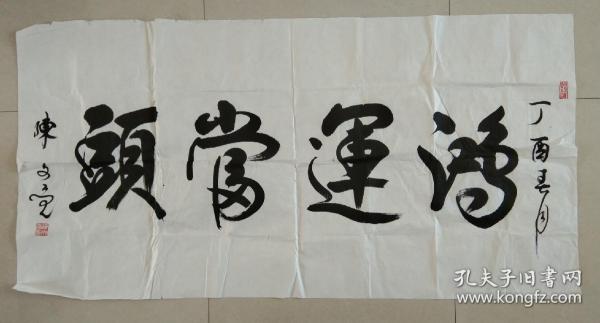 丁酉春月
鴻運當頭
陳文
孔夫子旧書网
www.kongfz.com